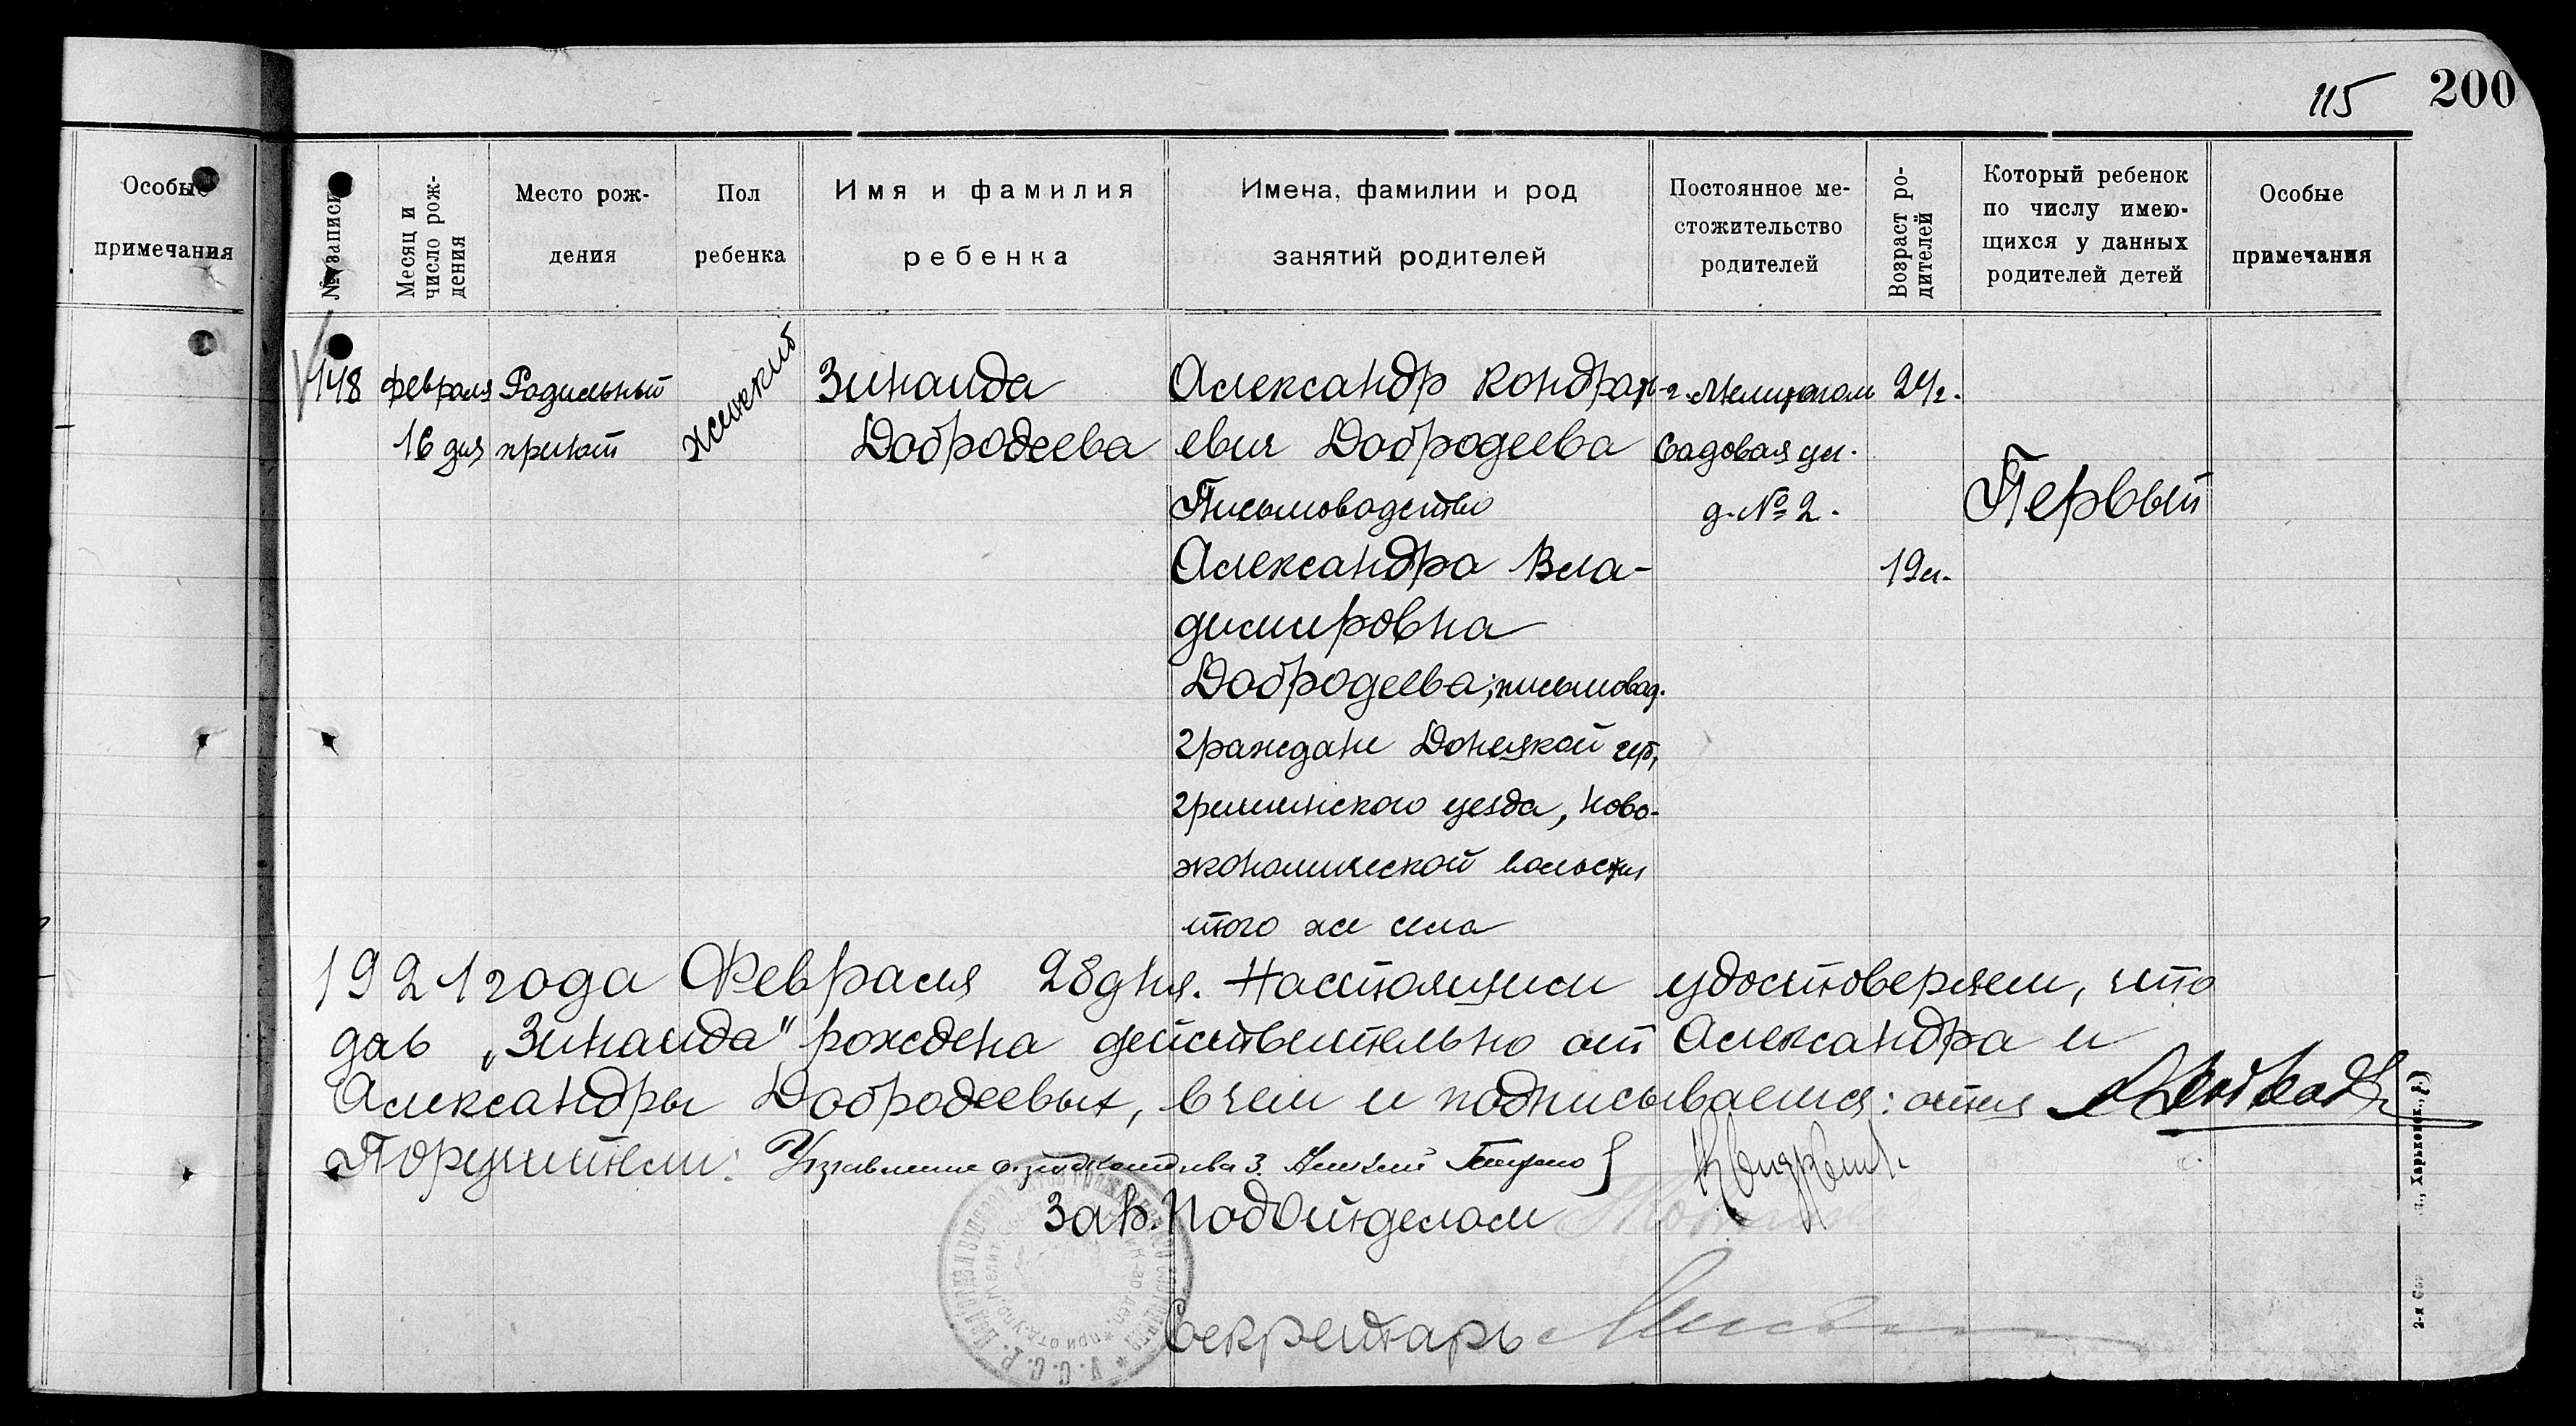 115
200
Особые
примечания
№ записи
Месяц и
число рож-
дения
Место рож-
дения
Пол
ребенка
Имя и фамилия
ребенка
Имена, фамилии и род
занятий родителей
Постоянное ме-
стожительство
родителей
Возраст ро-
дителей
Который ребенок
по числу имею-
щихся у данных
родителей детей
Особые
примечания
148
февраля
16 дня
Родильный
приют
женский
Зинаида
Добродеева
Александр Кондрать-
евич Добродеева
Письмоводство
Александра Вла-
димировна
Добродеева; письмовод.
граждане Донецкой губ,
гришинского уезда, Ново-
экономической волости
того же села
г. Мелитополь
Садовая ул.
д. № 2.
24 г.
19 л.
Первый
1921 года Февраля 28 дня. Настоящим удостоверяем, что
дав „Зинаида" рождена действительно от Александра и
Александры Добродеевых, в чем и подписываемся: отец
Поручители:
Зав. Подотделом
Секретарь
У.С.С.Р.
Харьковск.
2-я